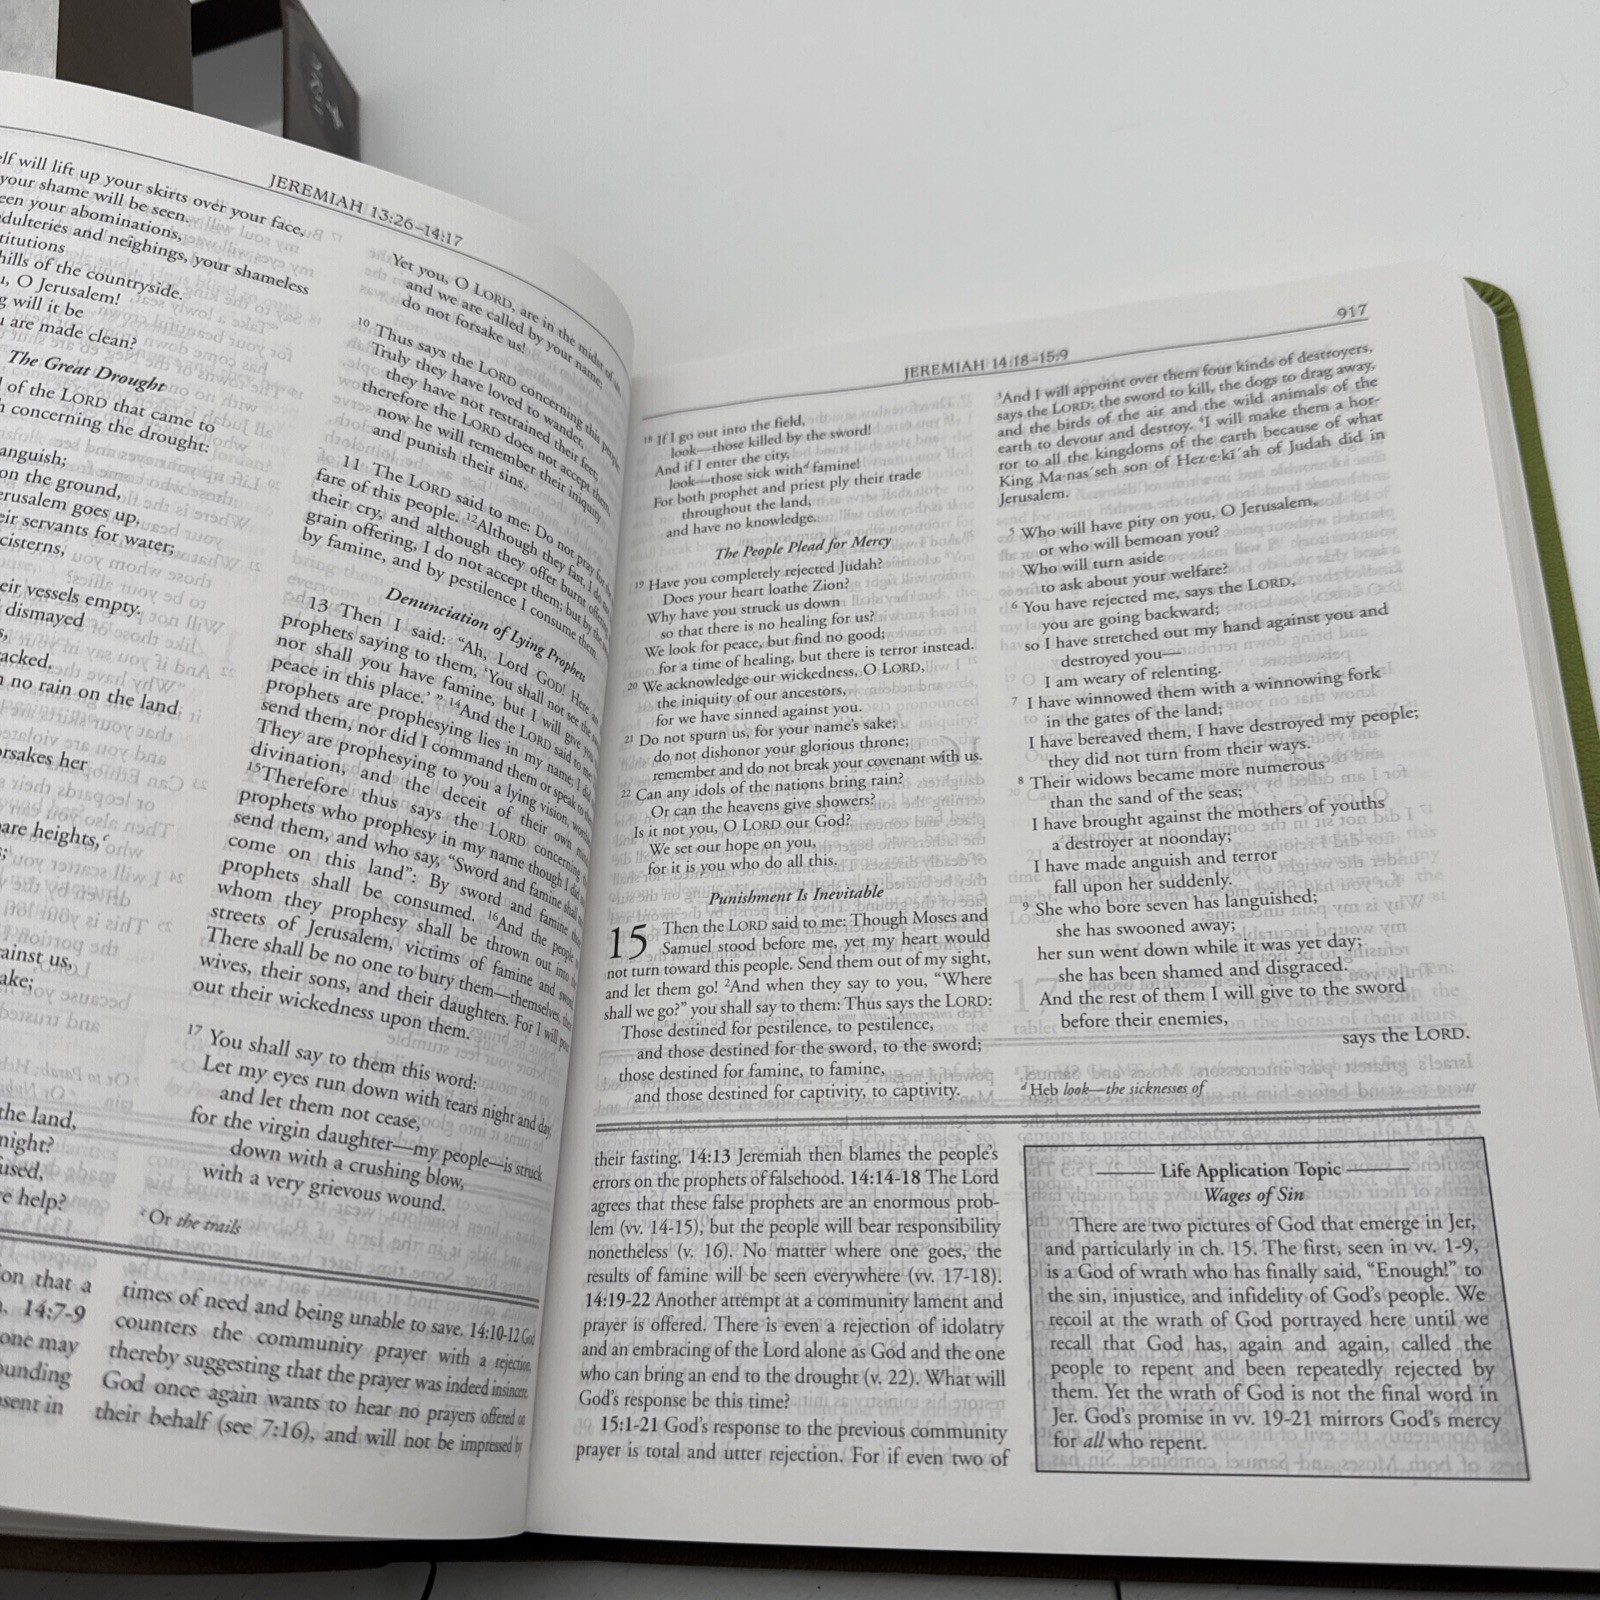 JEREMIAH 13:26–14:17
elf will lift up your skirts over your face,
your shame will be seen.
een your abominations,
dulteries and neighings, your shameless
titutions
hills of the countryside.
u, O Jerusalem!
g will it be
u are made clean?
The Great Drought
of the LORD that came to
h concerning the drought:
anguish;
on the ground,
erusalem goes up,
eir servants for water;
cisterns,
eir vessels empty.
dismayed
acked,
no rain on the land
orsakes her
are heights,c
ainst us,
ake;
the land,
night?
used,
ve help?
Yet you, O LORD, are in the midst of
and we are called by your name;
do not forsake us!
10 Thus says the LORD concerning this people:
Truly they have loved to wander,
they have not restrained their feet;
therefore the LORD does not accept them,
now he will remember their iniquity
and punish their sins.
11 The LORD said to me: Do not pray for the
fare of this people. 12Although they fast, I do
their cry, and although they offer burnt offering
grain offering, I do not accept them; but by the
by famine, and by pestilence I consume them.
Denunciation of Lying Prophets
13 Then I said: “Ah, Lord GOD! Here
prophets saying to them, ‘You shall not see the
nor shall you have famine, but I will give you
peace in this place.’ ” 14And the LORD said to me:
prophets are prophesying lies in my name; I did
send them, nor did I command them or speak to
They are prophesying to you a lying vision,
divination, and the deceit of their own
15Therefore thus says the LORD concerning
prophets who prophesy in my name though I did
send them, and who say, “Sword and famine shall
come on this land”: By sword and famine
prophets shall be consumed. 16And the people
whom they prophesy shall be thrown out into
streets of Jerusalem, victims of famine and sword
There shall be no one to bury them—themselves, their
wives, their sons, and their daughters. For I will pour
out their wickedness upon them.
17 You shall say to them this word:
Let my eyes run down with tears night and day,
and let them not cease,
for the virgin daughter—my people—is struck
down with a crushing blow,
with a very grievous wound.
c Or the trails
on that a
14:7-9
one may
ounding
sent in
times of need and being unable to save. 14:10-12 God
counters the community prayer with a rejection,
thereby suggesting that the prayer was indeed insincere.
God once again wants to hear no prayers offered on
their behalf (see 7:16), and will not be impressed by
JEREMIAH 14:18–15:9
917
18 If I go out into the field,
look—those killed by the sword!
And if I enter the city,
look—those sick withd famine!
For both prophet and priest ply their trade
throughout the land,
and have no knowledge.
The People Plead for Mercy
19 Have you completely rejected Judah?
Does your heart loathe Zion?
Why have you struck us down
so that there is no healing for us?
We look for peace, but find no good;
for a time of healing, but there is terror instead.
20 We acknowledge our wickedness, O LORD,
the iniquity of our ancestors,
for we have sinned against you.
21 Do not spurn us, for your name’s sake;
do not dishonor your glorious throne;
remember and do not break your covenant with us.
22 Can any idols of the nations bring rain?
Or can the heavens give showers?
Is it not you, O LORD our God?
We set our hope on you,
for it is you who do all this.
Punishment Is Inevitable
15 Then the LORD said to me: Though Moses and
Samuel stood before me, yet my heart would
not turn toward this people. Send them out of my sight,
and let them go! 2And when they say to you, “Where
shall we go?” you shall say to them: Thus says the LORD:
Those destined for pestilence, to pestilence,
and those destined for the sword, to the sword;
those destined for famine, to famine,
and those destined for captivity, to captivity.
3And I will appoint over them four kinds of destroyers,
says the LORD: the sword to kill, the dogs to drag away,
and the birds of the air and the wild animals of the
earth to devour and destroy. 4I will make them a hor-
ror to all the kingdoms of the earth because of what
King Ma·nas′seh son of Hez·e·kī′ah of Judah did in
Jerusalem.
5 Who will have pity on you, O Jerusalem,
or who will bemoan you?
Who will turn aside
to ask about your welfare?
6 You have rejected me, says the LORD,
you are going backward;
so I have stretched out my hand against you and
destroyed you—
I am weary of relenting.
7 I have winnowed them with a winnowing fork
in the gates of the land;
I have bereaved them, I have destroyed my people;
they did not turn from their ways.
8 Their widows became more numerous
than the sand of the seas;
I have brought against the mothers of youths
a destroyer at noonday;
I have made anguish and terror
fall upon her suddenly.
9 She who bore seven has languished;
she has swooned away;
her sun went down while it was yet day;
she has been shamed and disgraced.
And the rest of them I will give to the sword
before their enemies,
says the LORD.
d Heb look—the sicknesses of
their fasting. 14:13 Jeremiah then blames the people’s
errors on the prophets of falsehood. 14:14-18 The Lord
agrees that these false prophets are an enormous prob-
lem (vv. 14-15), but the people will bear responsibility
nonetheless (v. 16). No matter where one goes, the
results of famine will be seen everywhere (vv. 17-18).
14:19-22 Another attempt at a community lament and
prayer is offered. There is even a rejection of idolatry
and an embracing of the Lord alone as God and the one
who can bring an end to the drought (v. 22). What will
God’s response be this time?
15:1-21 God’s response to the previous community
prayer is total and utter rejection. For if even two of
Life Application Topic
Wages of Sin
There are two pictures of God that emerge in Jer,
and particularly in ch. 15. The first, seen in vv. 1-9,
is a God of wrath who has finally said, “Enough!” to
the sin, injustice, and infidelity of God’s people. We
recoil at the wrath of God portrayed here until we
recall that God has, again and again, called the
people to repent and been repeatedly rejected by
them. Yet the wrath of God is not the final word in
Jer. God’s promise in vv. 19-21 mirrors God’s mercy
for all who repent.